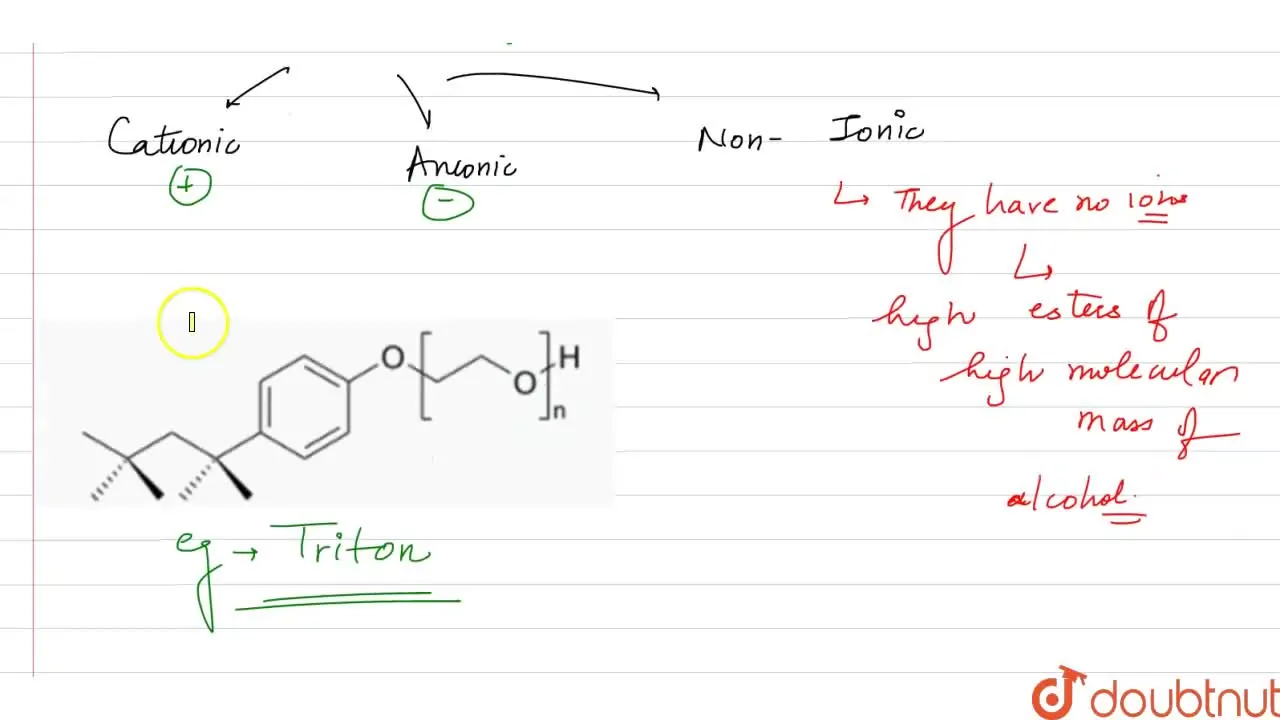 Cationic
+
Anionic
-
Non- Ionic
↳ They have no ions
↳
high esters of
high molecular
mass of
alcohol.
O [ O ] H
n
eg → Triton
doubtnut